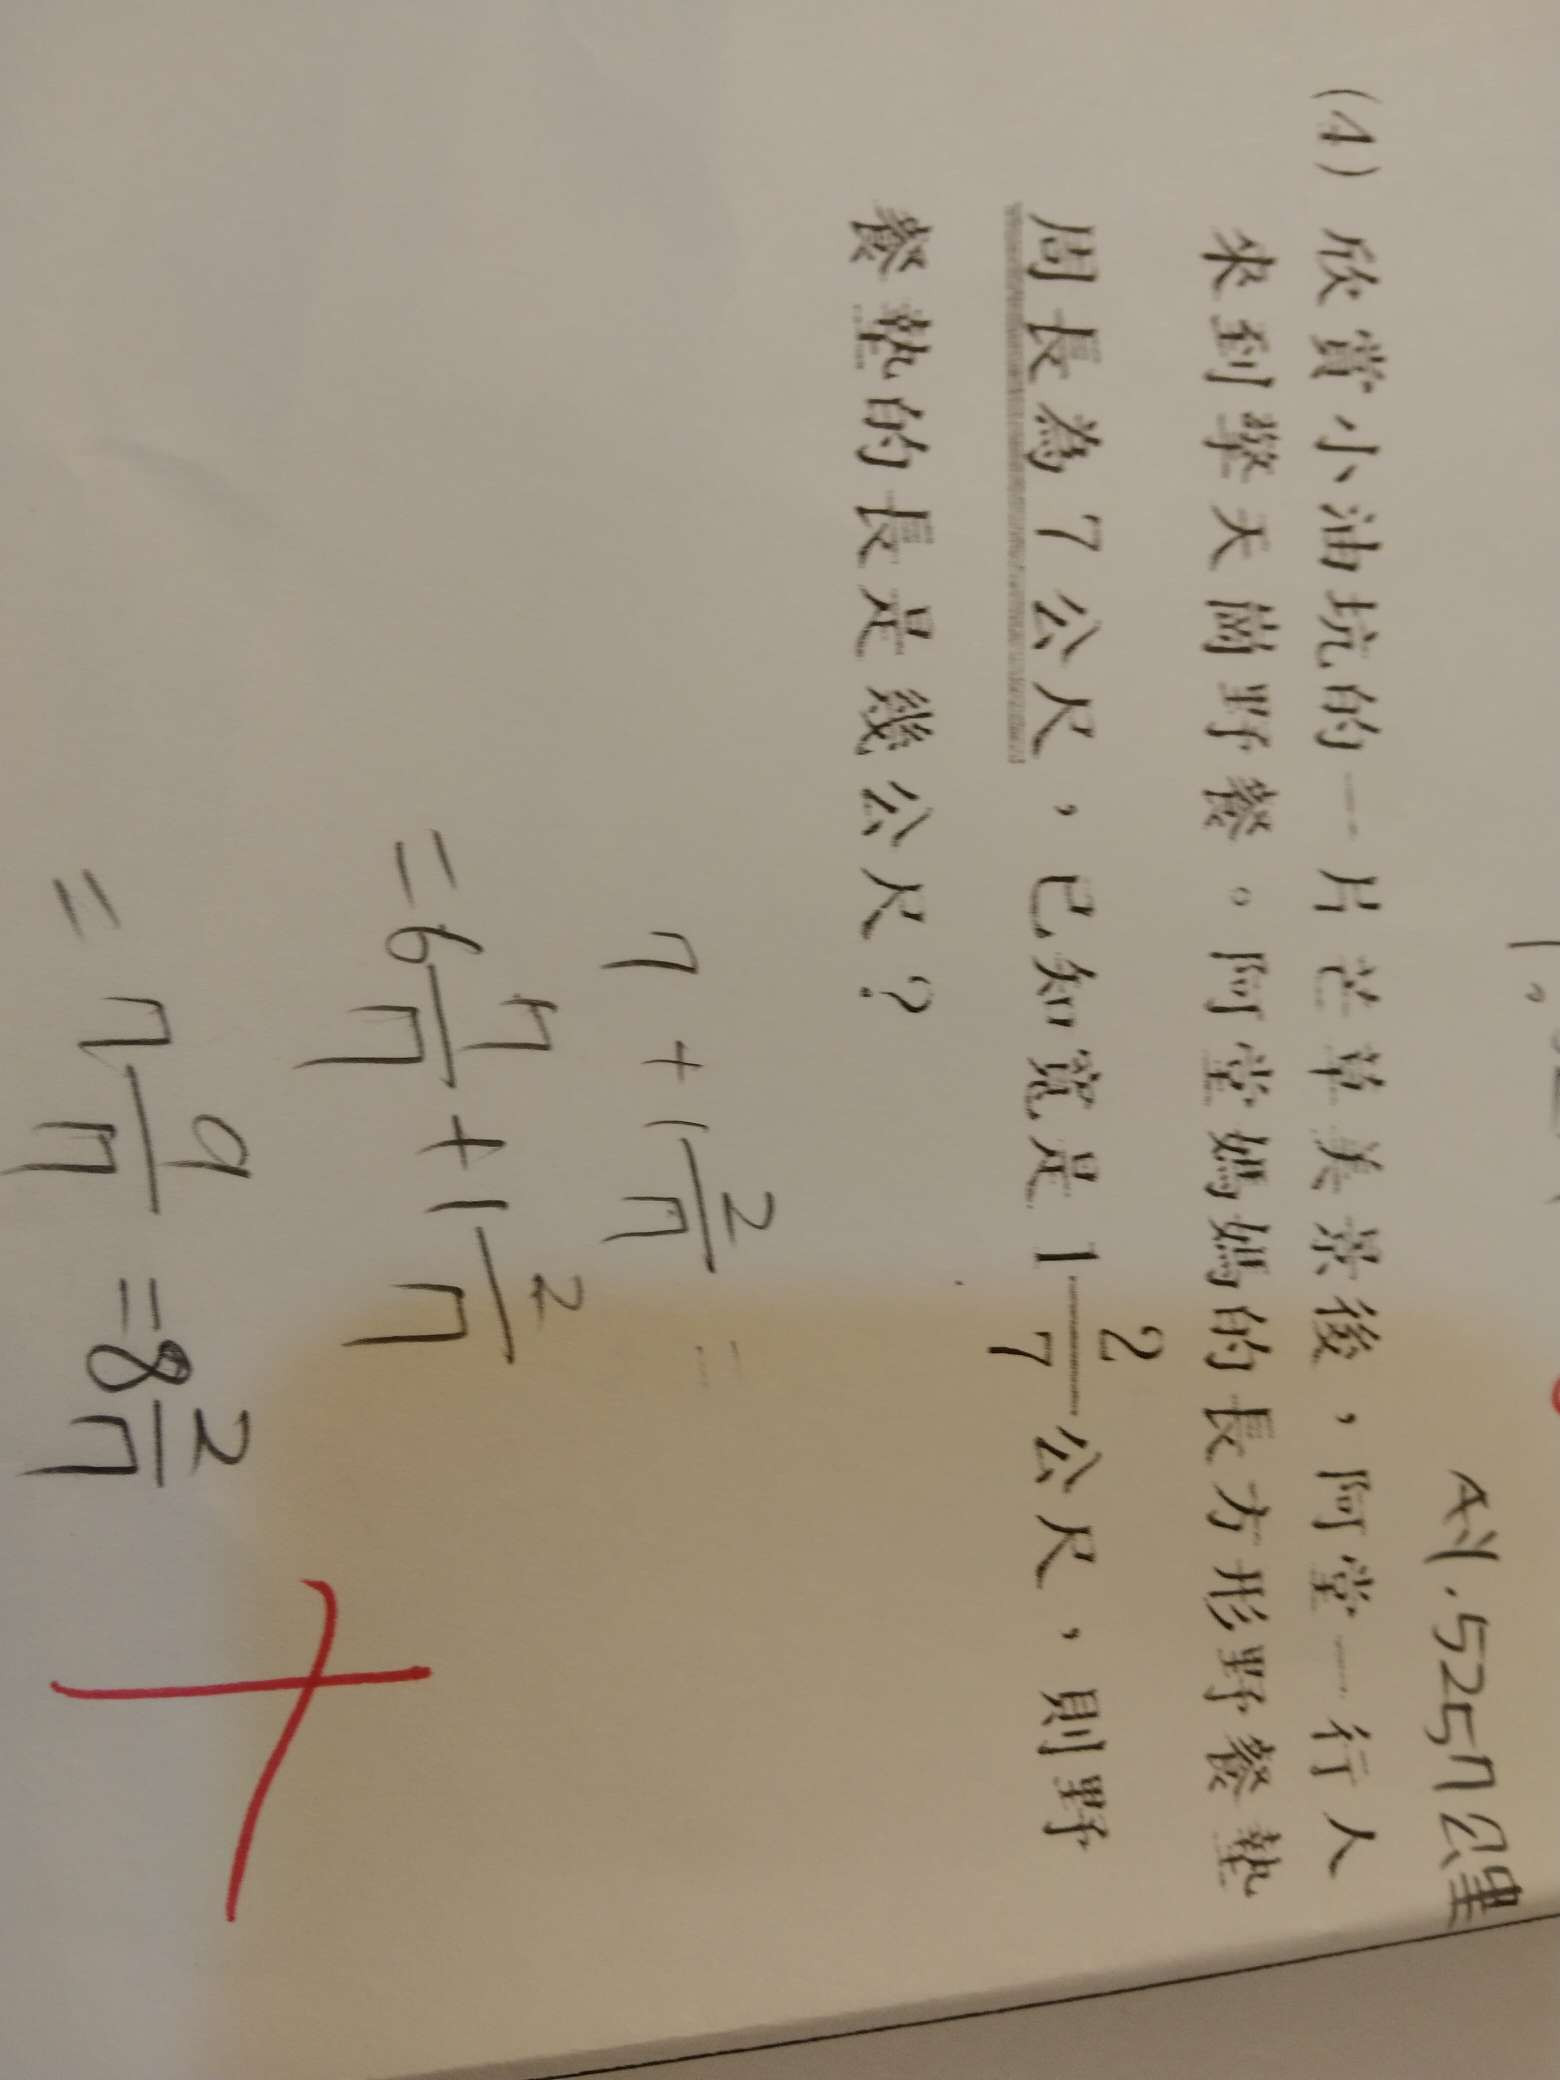 A：1.5257公里
(4) 欣賞小油坑的一片芒草美景後，阿堂一行人
來到擎天崗野餐。阿堂媽媽的長方形野餐墊
周長為7公尺，已知寬是 1 2/7 公尺，則野
餐墊的長是幾公尺？
7 + 1 2/7 =
= 6 7/7 + 1 2/7
= 7 9/7 = 8 2/7